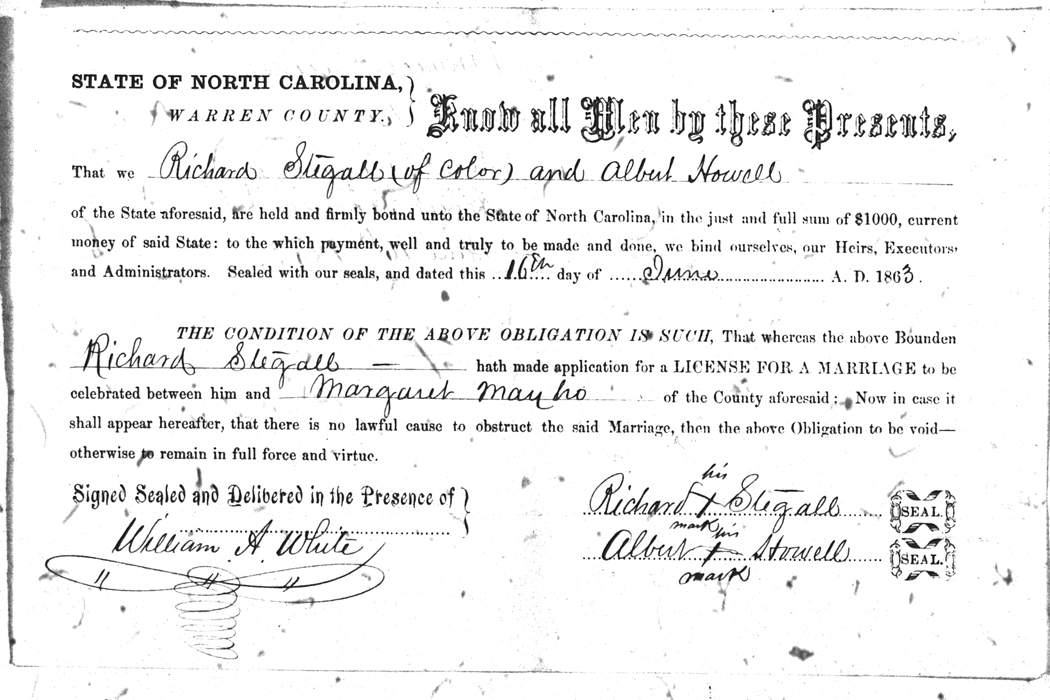 STATE OF NORTH CAROLINA,
WARREN COUNTY.
Know all Men by these Presents,
That we Richard Stegall (of color) and Albert Howell
of the State aforesaid, are held and firmly bound unto the State of North Carolina, in the just and full sum of $1000, current
money of said State: to the which payment, well and truly to be made and done, we bind ourselves, our Heirs, Executors
and Administrators. Sealed with our seals, and dated this 16th day of June A. D. 1863.
THE CONDITION OF THE ABOVE OBLIGATION IS SUCH, That whereas the above Bounden
Richard Stegall — hath made application for a LICENSE FOR A MARRIAGE to be
celebrated between him and Margaret Mayho of the County aforesaid: Now in case it
shall appear hereafter, that there is no lawful cause to obstruct the said Marriage, then the above Obligation to be void—
otherwise to remain in full force and virtue.
Signed Sealed and Delibered in the Presence of
William A. White
his
Richard X Stegall SEAL.
mark his
Albert X Howell SEAL.
mark